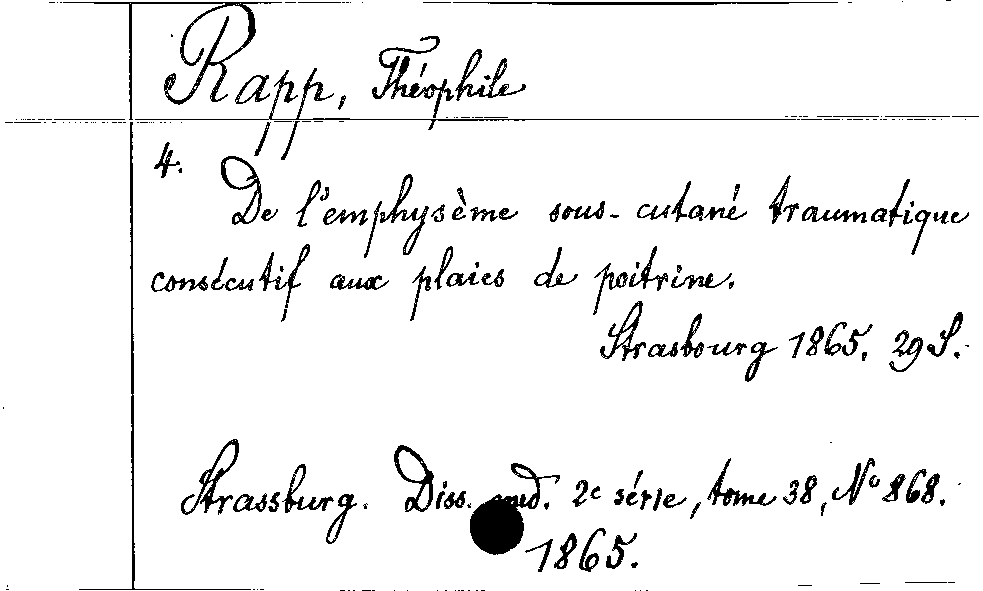 Rapp, Théophile
4.
De l'emphysème sous-cutané traumatique
consécutif aux plaies de poitrine.
Strasbourg 1865. 29 S.
Strassburg. Diss. med. 2e série, tome 38, No 868.
1865.